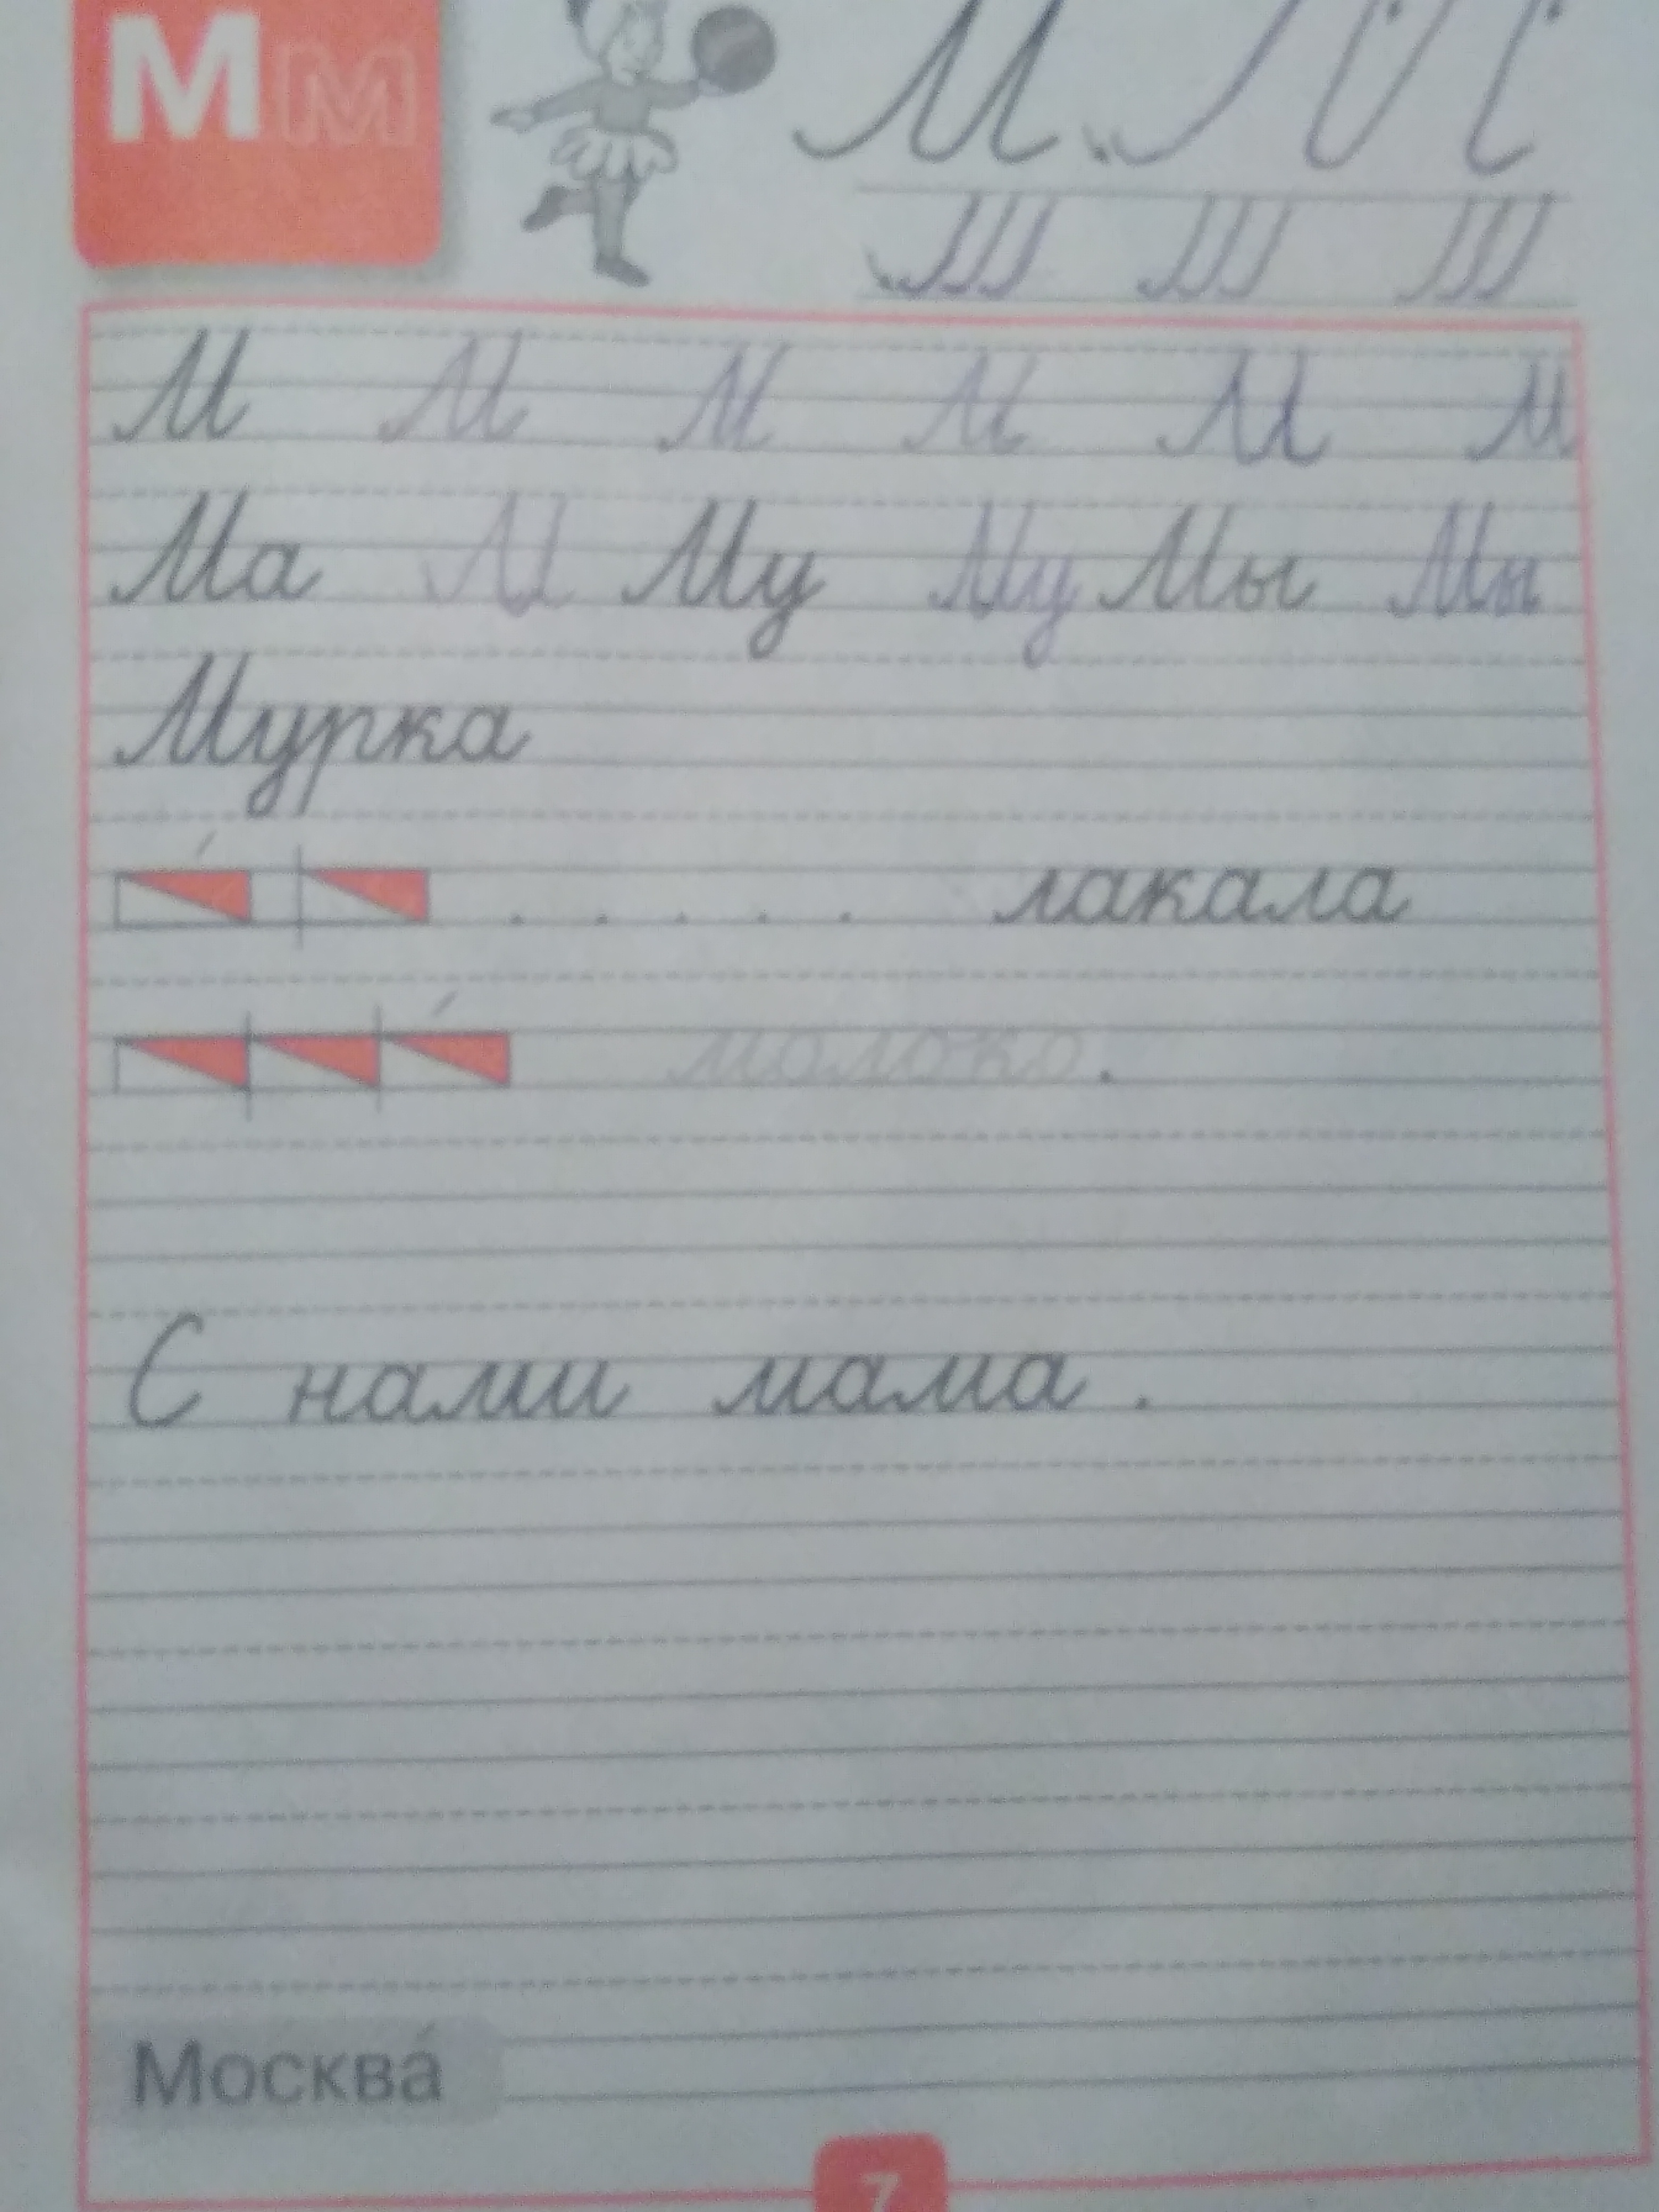 М м М
М М М М М М
Ма М Му Му Мы Мы
Мурка
. . . . . лакала
молоко.
С нами мама.
Москва́
7